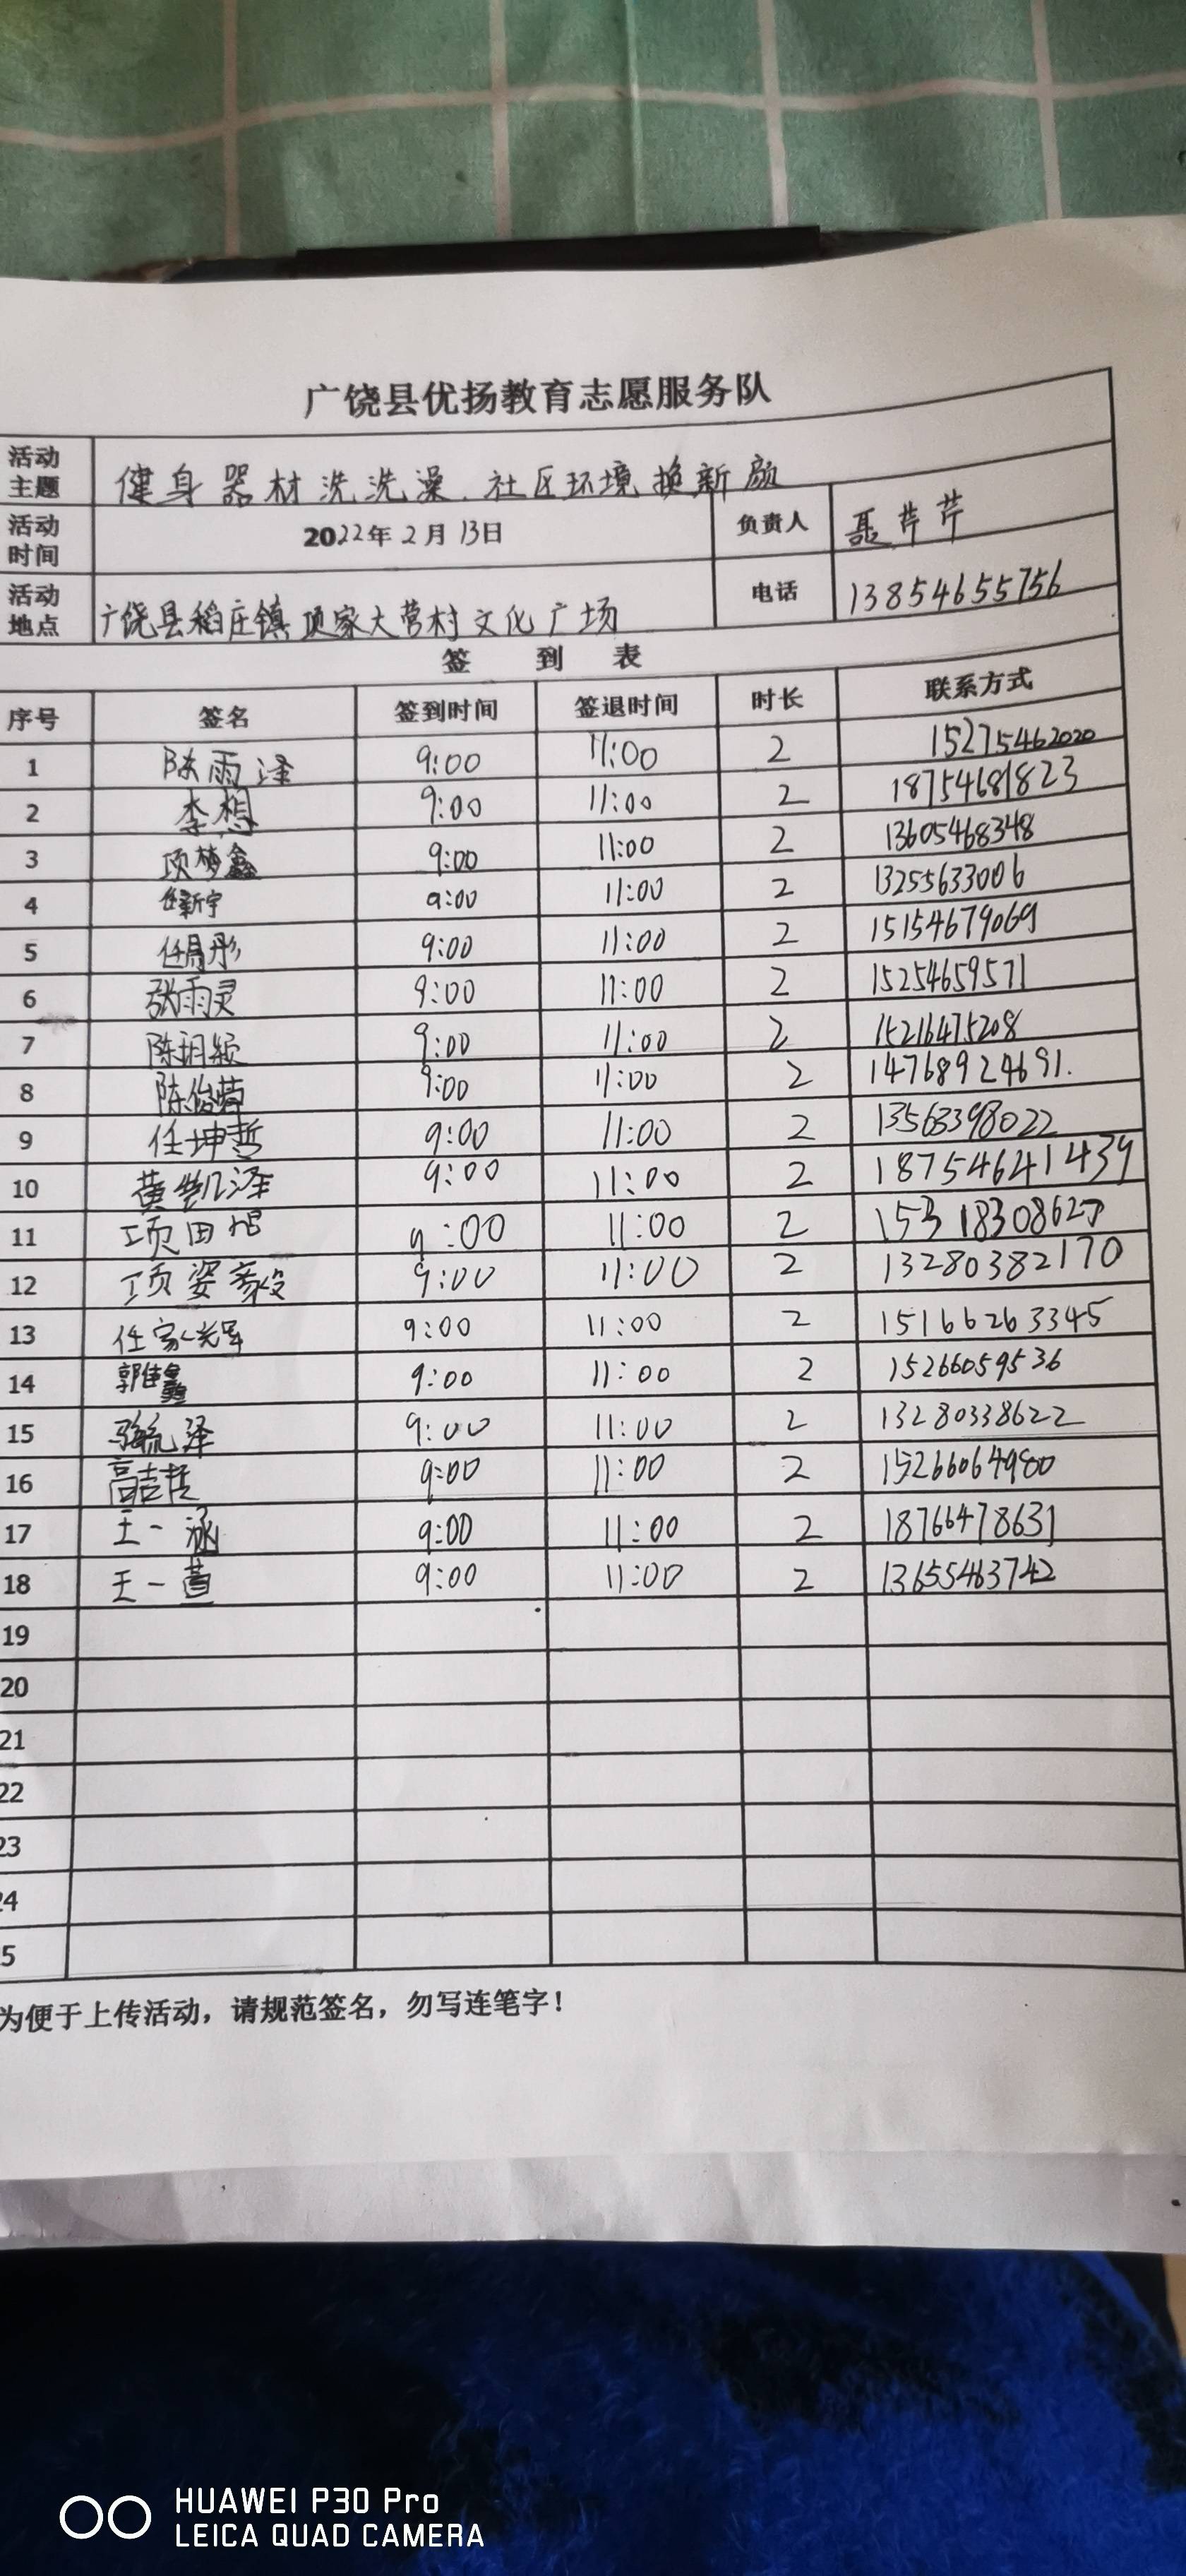 广饶县优扬教育志愿服务队
活动主题 健身器材洗洗澡.社区环境换新颜
活动时间 2022年2月13日 负责人 聂芹芹
活动地点 广饶县稻庄镇项家大营村文化广场 电话 13854655756
签到表
序号 签名 签到时间 签退时间 时长 联系方式
1 陈雨泽 9:00 11:00 2 15275462020
2 李想 9:00 11:00 2 18754681823
3 项梦鑫 9:00 11:00 2 13605468348
4 任新宇 9:00 11:00 2 13255633006
5 任昌彤 9:00 11:00 2 15154679069
6 张雨灵 9:00 11:00 2 15254659571
7 陈玥颖 9:00 11:00 2 15216475208
8 陈俊 9:00 11:00 2 14768924691.
9 任坤哲 9:00 11:00 2 13563398022
10 黄凯泽 9:00 11:00 2 18754641439
11 项田 9:00 11:00 2
12 项姿 9:00 11:00 2 13280382170
13 任家 9:00 11:00 2 15166263345
14 郭佳鑫 9:00 11:00 2 15266059536
15 骆毓泽 9:00 11:00 2 13280338622
16 高吉哲 9:00 11:00 2 15266064980
17 王一涵 9:00 11:00 2 18766478631
18 王一萱 9:00 11:00 2 13655463742
19
20
21
22
23
24
5
为便于上传活动，请规范签名，勿写连笔字！
HUAWEI P30 Pro
LEICA QUAD CAMERA